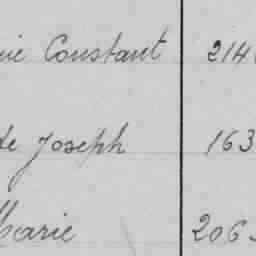 Constant 214
Joseph 163
Marie 206